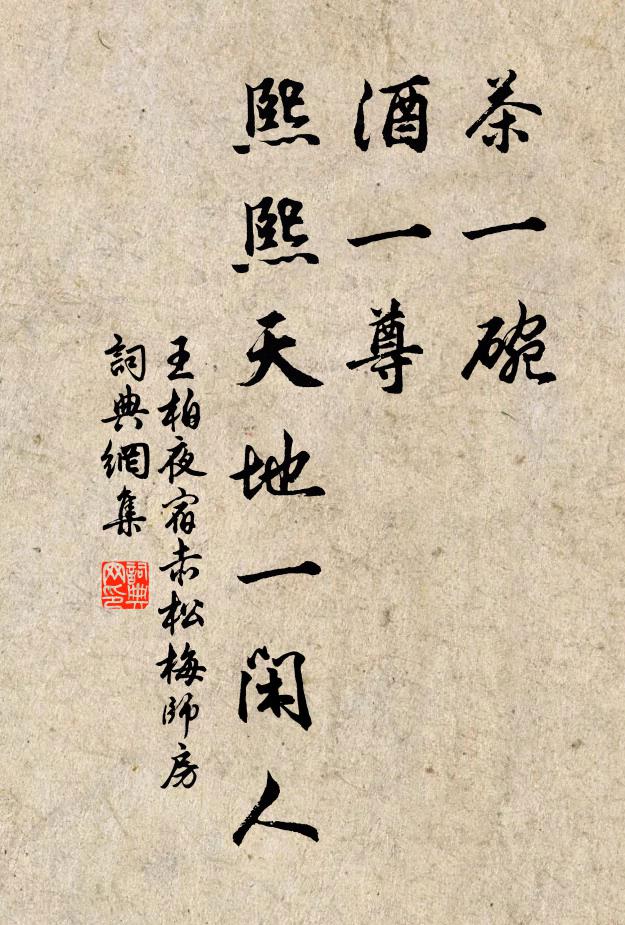 茶一碗
酒一尊
熙熙天地一閑人
王柏夜宿赤松梅師房
詞典網集
詞典网印